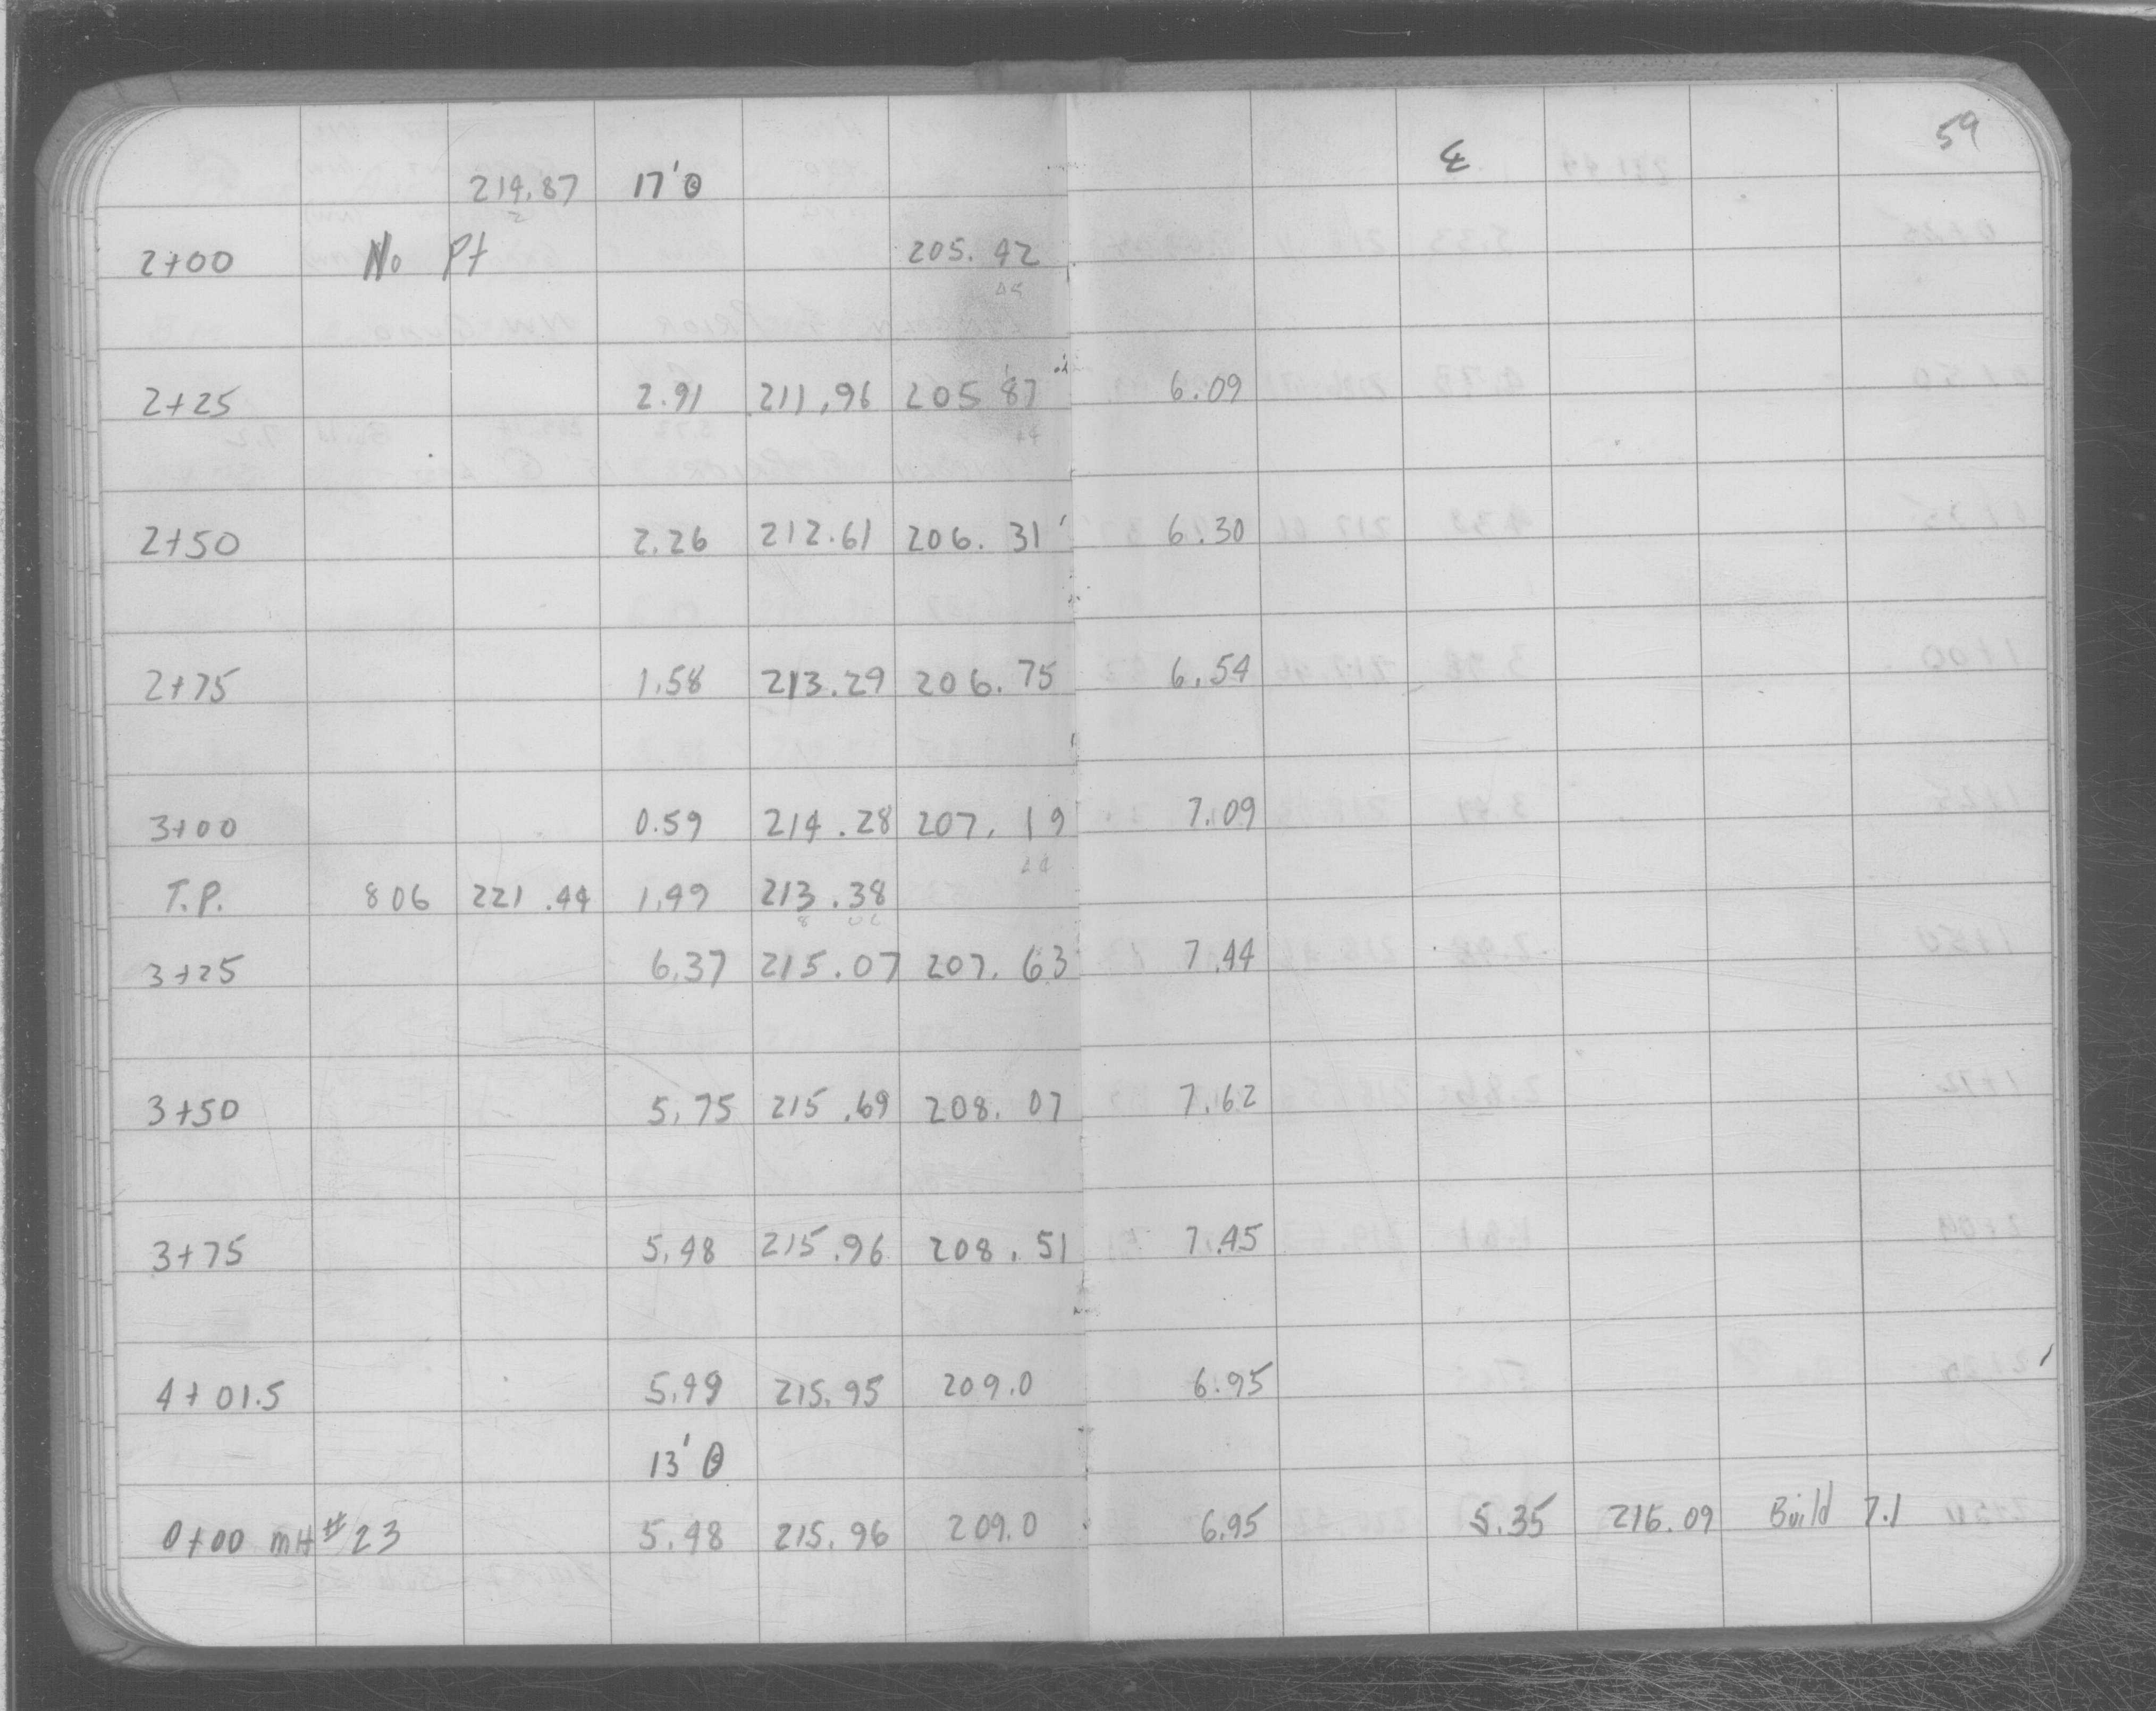 59
214.87 17'0 ℄
2+00 No Pt 205.42
2+25 2.91 211.96 205.87 6.09
2+50 2.26 212.61 206.31 6.30
2+75 1.58 213.29 206.75 6.54
3+00 0.59 214.28 207.19 7.09
T.P. 806 221.44 1.49 213.38
3+25 6.37 215.07 207.63 7.44
3+50 5.75 215.69 208.07 7.62
3+75 5.48 215.96 208.51 7.45
4+01.5 5.49 215.95 209.0 6.95
13'0
0+00 MH #23 5.48 215.96 209.0 6.95 5.35 216.09 Build 7.1